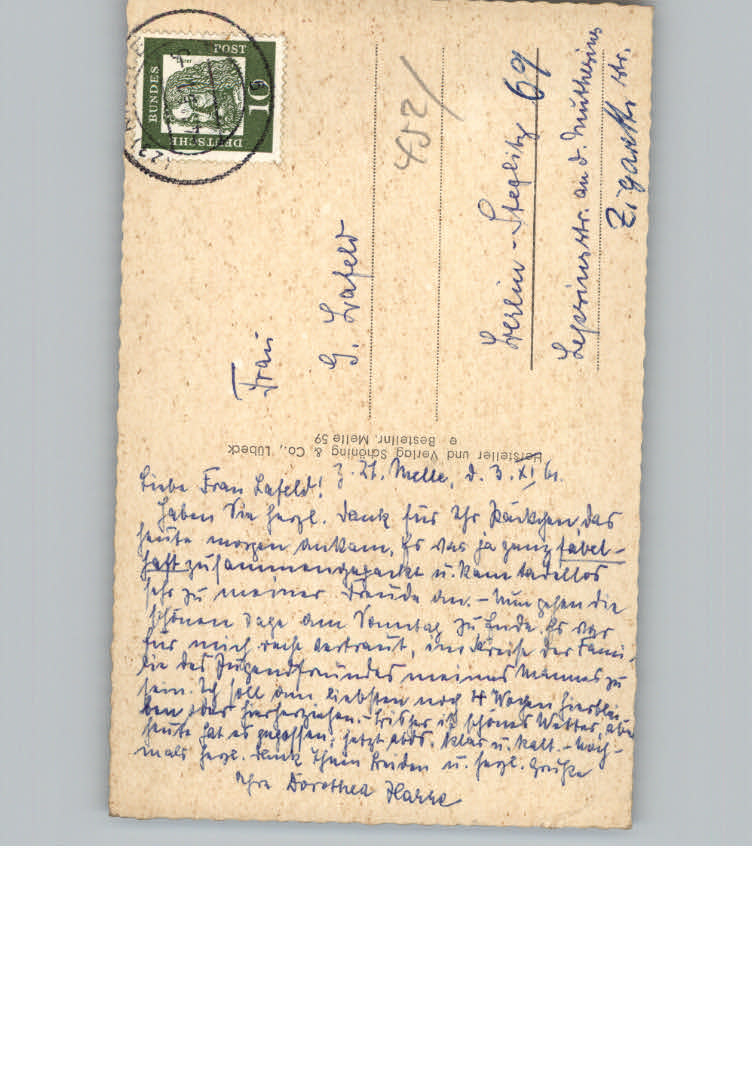 DEUTSCHE
BUNDES
POST
10
452/
Frau
G. Lafeld
Berlin-Steglitz 69
Lepsiusstr. an d.
Hersteller und Verlag Schöning & Co., Lübeck
e Bestellnr. Melle 59
z. Zt. Melle, d. 3. XI 61.
Liebe Frau Lafeld!
Haben Sie herzl. Dank für Ihr Päckchen, das
heute morgen ankam. Es war ja ganz fabel-
haft zusammengepackt u. kam tadellos
sehr zu meiner Freude an. - Nun gehen die
schönen Tage am Sonntag zu Ende. Es war
für mich recht vertraut, im Kreise der Fami-
lie des Jugendfreundes meines Mannes zu
sein. Ich soll am liebsten noch 4 Wochen hierblei-
ben oder hierherziehen. - Bisher ist schönes Wetter, aber
heute hat es gegossen; jetzt abds. klar u. kalt. - Noch-
mals herzl. Dank Ihnen Beiden u. herzl. Grüße
Ihre Dorothea